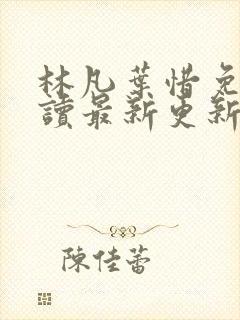 林凡葉惜免
讀最新更新
陳佳蕾